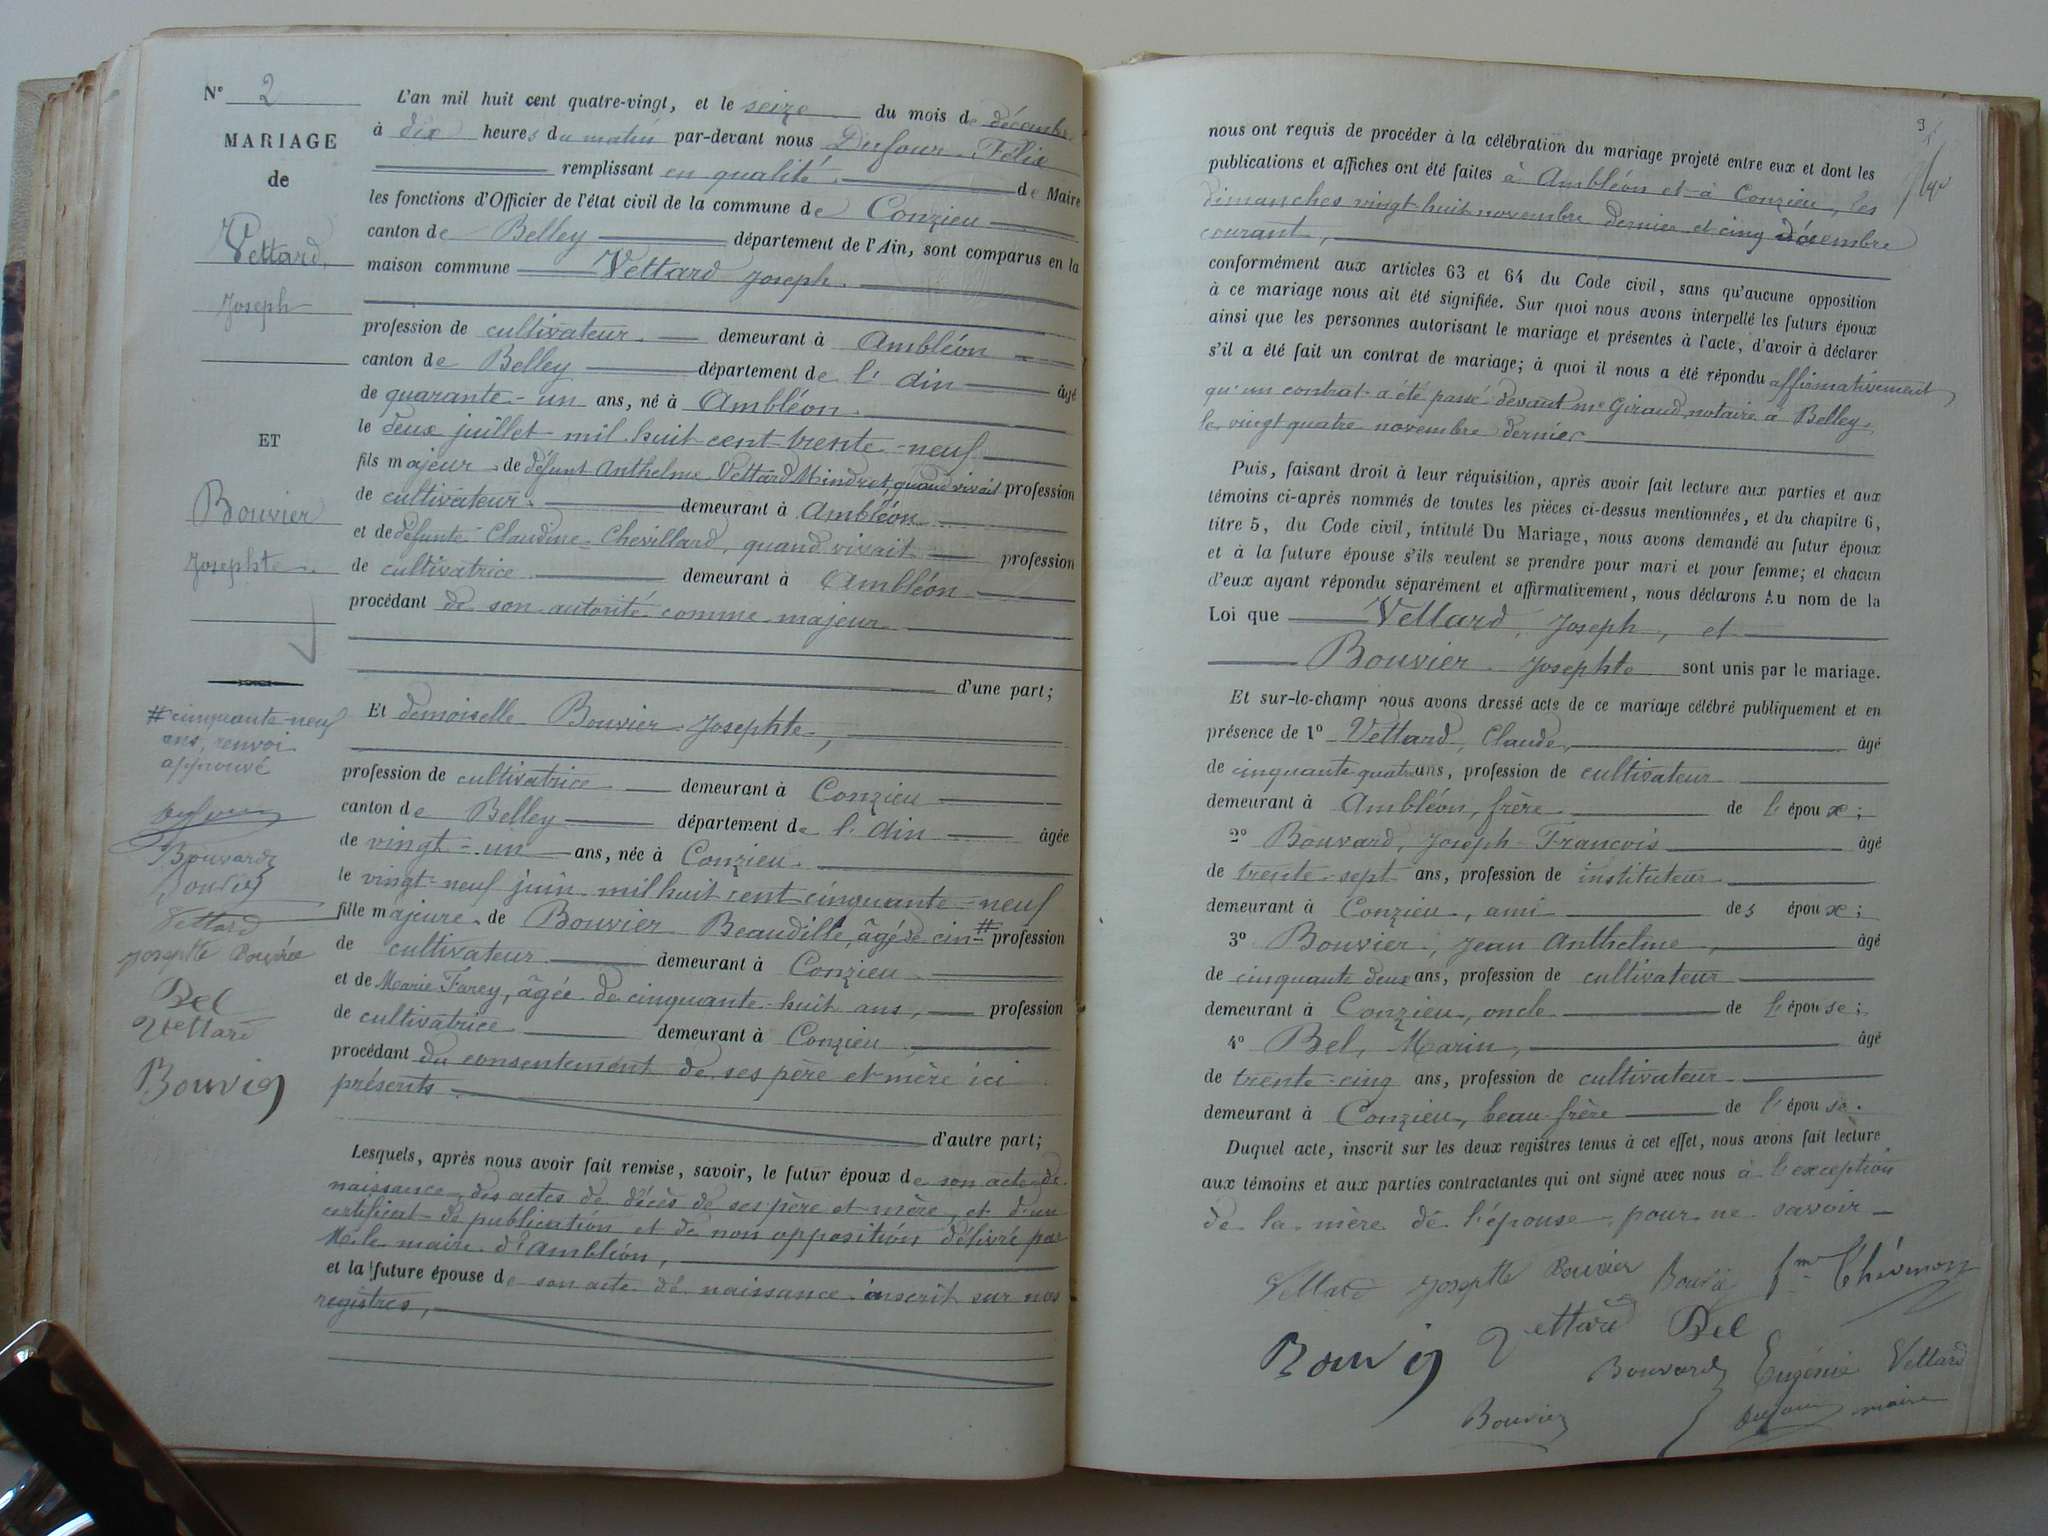 N° 2
MARIAGE
de
Vettard,
Joseph
ET
Bouvier
Josephte
# cinquante-neuf
ans, renvoi
approuvé
Dufour
Bouvard
Bouvier
Vettard
Josephte Bouvier
Bel
Vettard
Bouvier
L'an mil huit cent quatre-vingt, et le seize du mois de décembre
à dix heures du matin par-devant nous Dufour Félix
remplissant en qualité de Maire
les fonctions d'Officier de l'état civil de la commune de Conzieu
canton de Belley département de l'Ain, sont comparus en la
maison commune Vettard Joseph
profession de cultivateur demeurant à Ambléon
canton de Belley département de l'Ain âgé
de quarante-un ans, né à Ambléon
le deux juillet mil huit cent trente-neuf
fils majeur de défunt Anthelme Vettard Mindret quand vivait profession
de cultivateur demeurant à Ambléon
et de défunte Claudine Chevillard, quand vivait profession
de cultivatrice demeurant à Ambléon
procédant de son autorité comme majeur
d'une part;
Et demoiselle Bouvier Josephte,
profession de cultivatrice demeurant à Conzieu
canton de Belley département de l'Ain âgée
de vingt-un ans, née à Conzieu
le vingt-neuf juin mil huit cent cinquante-neuf
fille majeure de Bouvier Beaudille, âgé de cin-# profession
de cultivateur demeurant à Conzieu
et de Marie Farey, âgée de cinquante-huit ans, profession
de cultivatrice demeurant à Conzieu
procédant du consentement de ses père et mère ici
présents
d'autre part;
Lesquels, après nous avoir fait remise, savoir, le futur époux de son acte de
naissance, des actes de décès de ses père et mère, et d'un
certificat de publication et de non opposition délivré par
M. le maire d'Ambléon,
et la future épouse de son acte de naissance inscrit sur nos
registres,
9
nous ont requis de procéder à la célébration du mariage projeté entre eux et dont les
publications et affiches ont été faites à Ambléon et à Conzieu, les
dimanches vingt-huit novembre dernier et cinq décembre
courant,
conformément aux articles 63 et 64 du Code civil, sans qu'aucune opposition
à ce mariage nous ait été signifiée. Sur quoi nous avons interpellé les futurs époux
ainsi que les personnes autorisant le mariage et présentes à l'acte, d'avoir à déclarer
s'il a été fait un contrat de mariage; à quoi il nous a été répondu affirmativement
qu'un contrat a été passé devant Me Giraud, notaire à Belley,
le vingt quatre novembre dernier
Puis, faisant droit à leur réquisition, après avoir fait lecture aux parties et aux
témoins ci-après nommés de toutes les pièces ci-dessus mentionnées, et du chapitre 6,
titre 5, du Code civil, intitulé Du Mariage, nous avons demandé au futur époux
et à la future épouse s'ils veulent se prendre pour mari et pour femme; et chacun
d'eux ayant répondu séparément et affirmativement, nous déclarons Au nom de la
Loi que Vettard, Joseph, et
Bouvier Josephte sont unis par le mariage.
Et sur-le-champ nous avons dressé acte de ce mariage célébré publiquement et en
présence de 1° Vettard, Claude, âgé
de cinquante-quatre ans, profession de cultivateur
demeurant à Ambléon, frère de l'époux;
2° Bouvard, Joseph-François âgé
de trente-sept ans, profession de instituteur
demeurant à Conzieu, ami des époux;
3° Bouvier, Jean Anthelme, âgé
de cinquante deux ans, profession de cultivateur
demeurant à Conzieu, oncle de l'épouse;
4° Bel, Marin, âgé
de trente-cinq ans, profession de cultivateur
demeurant à Conzieu, beau-frère de l'épouse.
Duquel acte, inscrit sur les deux registres tenus à cet effet, nous avons fait lecture
aux témoins et aux parties contractantes qui ont signé avec nous à l'exception
de la mère de l'épouse pour ne savoir
Vettard Josephte Bouvier Bouvier
Bouvier Vettard Bel
Bouvard Eugénie Vettard
Bouvier Dufour maire